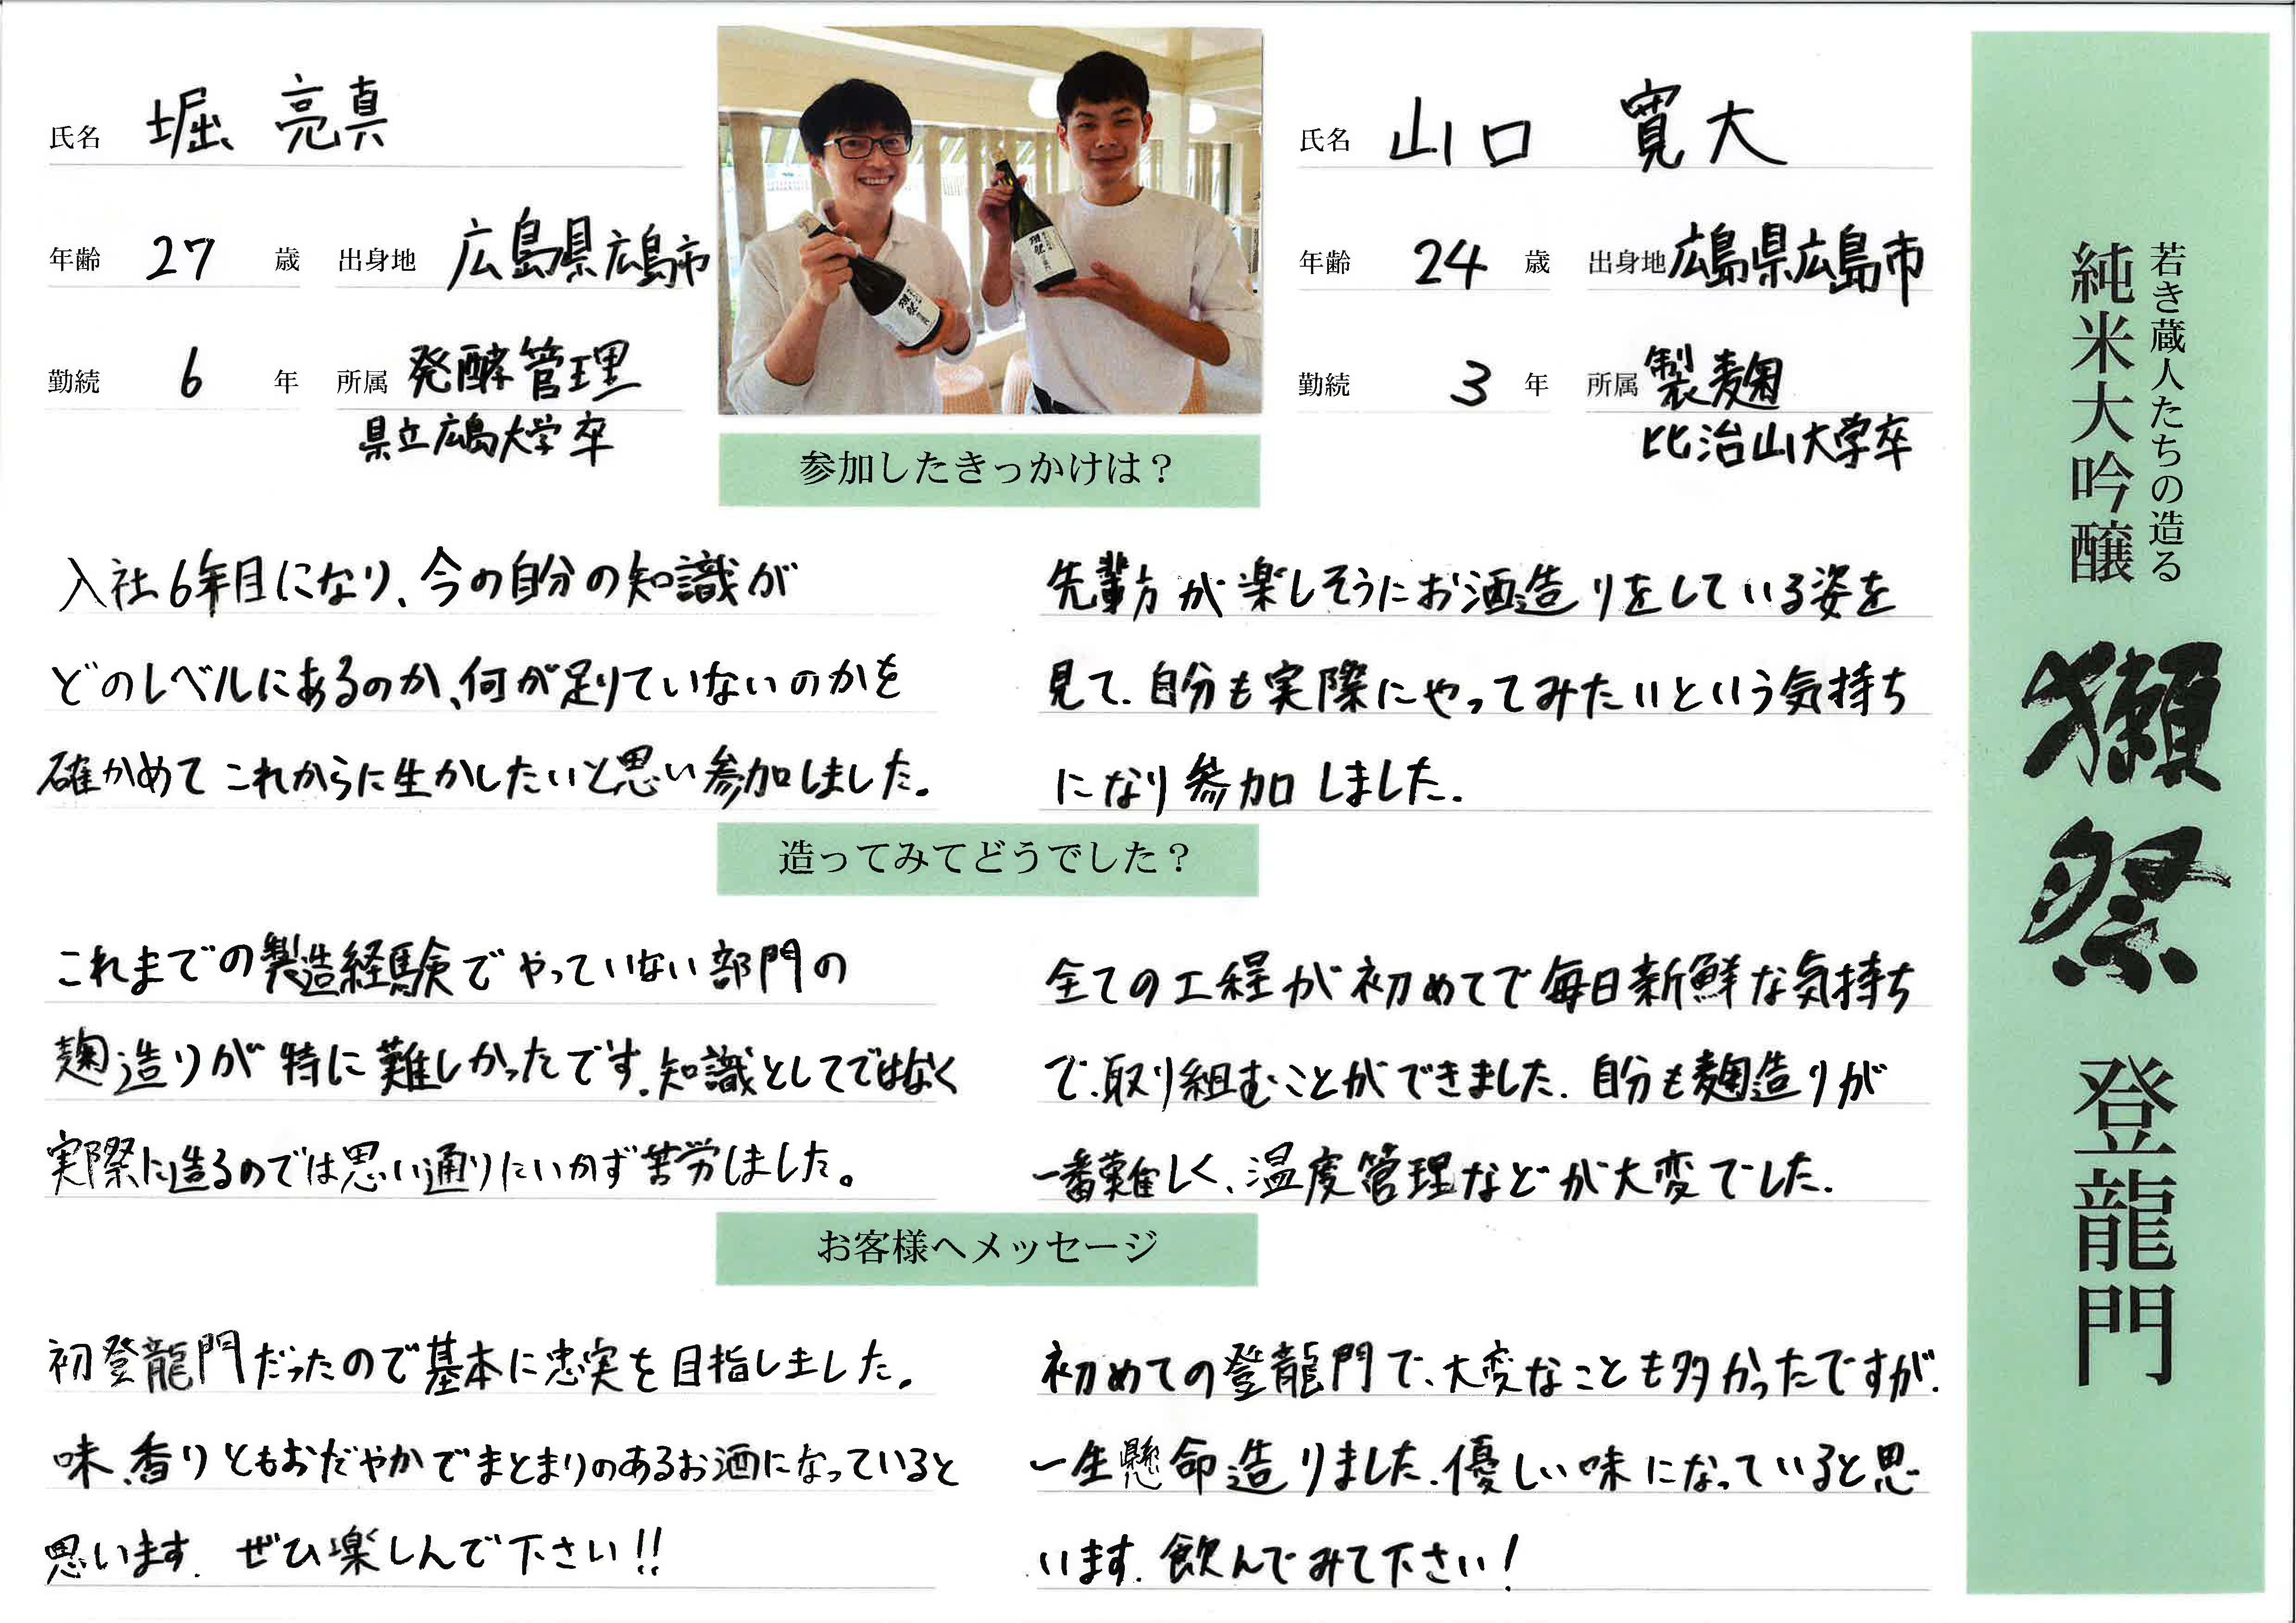 若き蔵人たちの造る
純米大吟醸
獺祭
登龍門
氏名 堀 亮真
年齢 27 歳 出身地 広島県広島市
勤続 6 年 所属 発酵管理
県立広島大学卒
氏名 山口 寛大
年齢 24 歳 出身地 広島県広島市
勤続 3 年 所属 製麹
比治山大学卒
参加したきっかけは？
入社6年目になり、今の自分の知識が
どのレベルにあるのか、何が足りていないのかを
確かめてこれからに生かしたいと思い参加しました。
先輩方が楽しそうにお酒造りをしている姿を
見て、自分も実際にやってみたいという気持ち
になり参加しました。
造ってみてどうでした？
これまでの製造経験でやっていない部門の
麹造りが特に難しかったです。知識としてではなく
実際に造るのでは思い通りにいかず苦労しました。
全ての工程が初めてで毎日新鮮な気持ち
で、取り組むことができました。自分も麹造りが
一番難しく、温度管理などが大変でした。
お客様へメッセージ
初登龍門だったので基本に忠実を目指しました。
味、香りともおだやかでまとまりのあるお酒になっていると
思います。ぜひ楽しんで下さい!!
初めての登龍門で、大変なことも多かったですが、
一生懸命造りました。優しい味になっていると思
います。飲んでみて下さい！